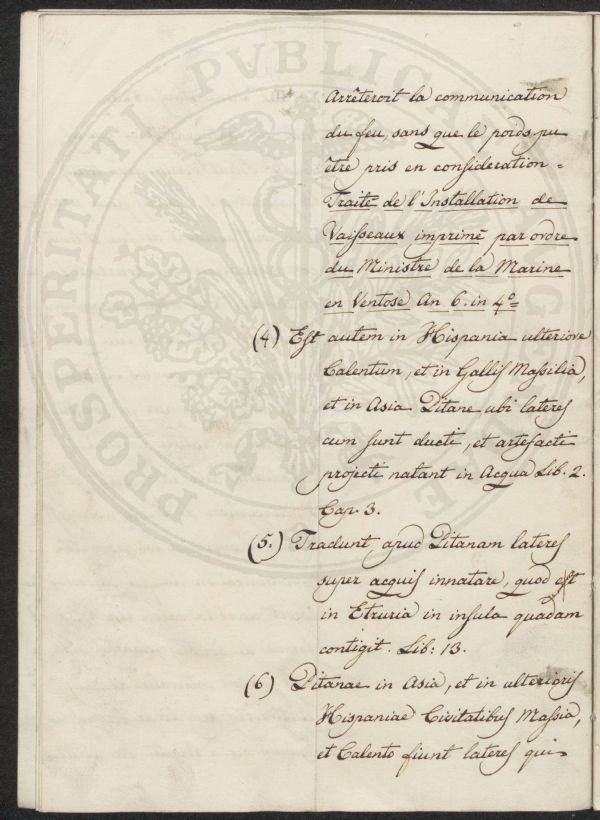 Arrêteroit la communication
du feu, sans que le poids pu
être pris en consideration =
Traité de l'Installation de
Vaisseaux imprimé par ordre
du Ministre de la Marine
en Ventose An 6. in 4º =
(4) Est autem in Hispania ulteriore
Calentum, et in Gallis Massilia,
et in Asia Pitane ubi lateres
cum sunt ducti, et artefacti
projecti natant in Acqua Lib. 2.
Cap. 3.
(5.) Tradunt apud Pitanam lateres
super acquis innatare, quod est
in Etruria in insula quadam
contigit. Lib: 13.
(6) Pitanae in Asia, et in ulterioris
Hispaniae Civitatibus Massia,
et Calento fiunt lateres qui
PROSPERITATI PVBLICAE